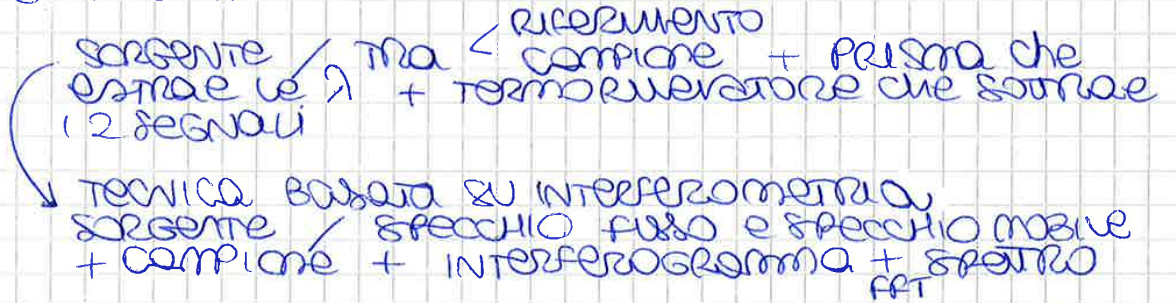 RIFERIMENTO
SORGENTE / TRA < CAMPIONE + PRISMA che
estrae le λ + TERMORILEVATORE che sottrae
i 2 SEGNALI
TECNICA BASATA SU INTERFEROMETRIA
SORGENTE / SPECCHIO FISSO e SPECCHIO MOBILE
+ CAMPIONE + INTERFEROGRAMMA + SPETTRO
FFT